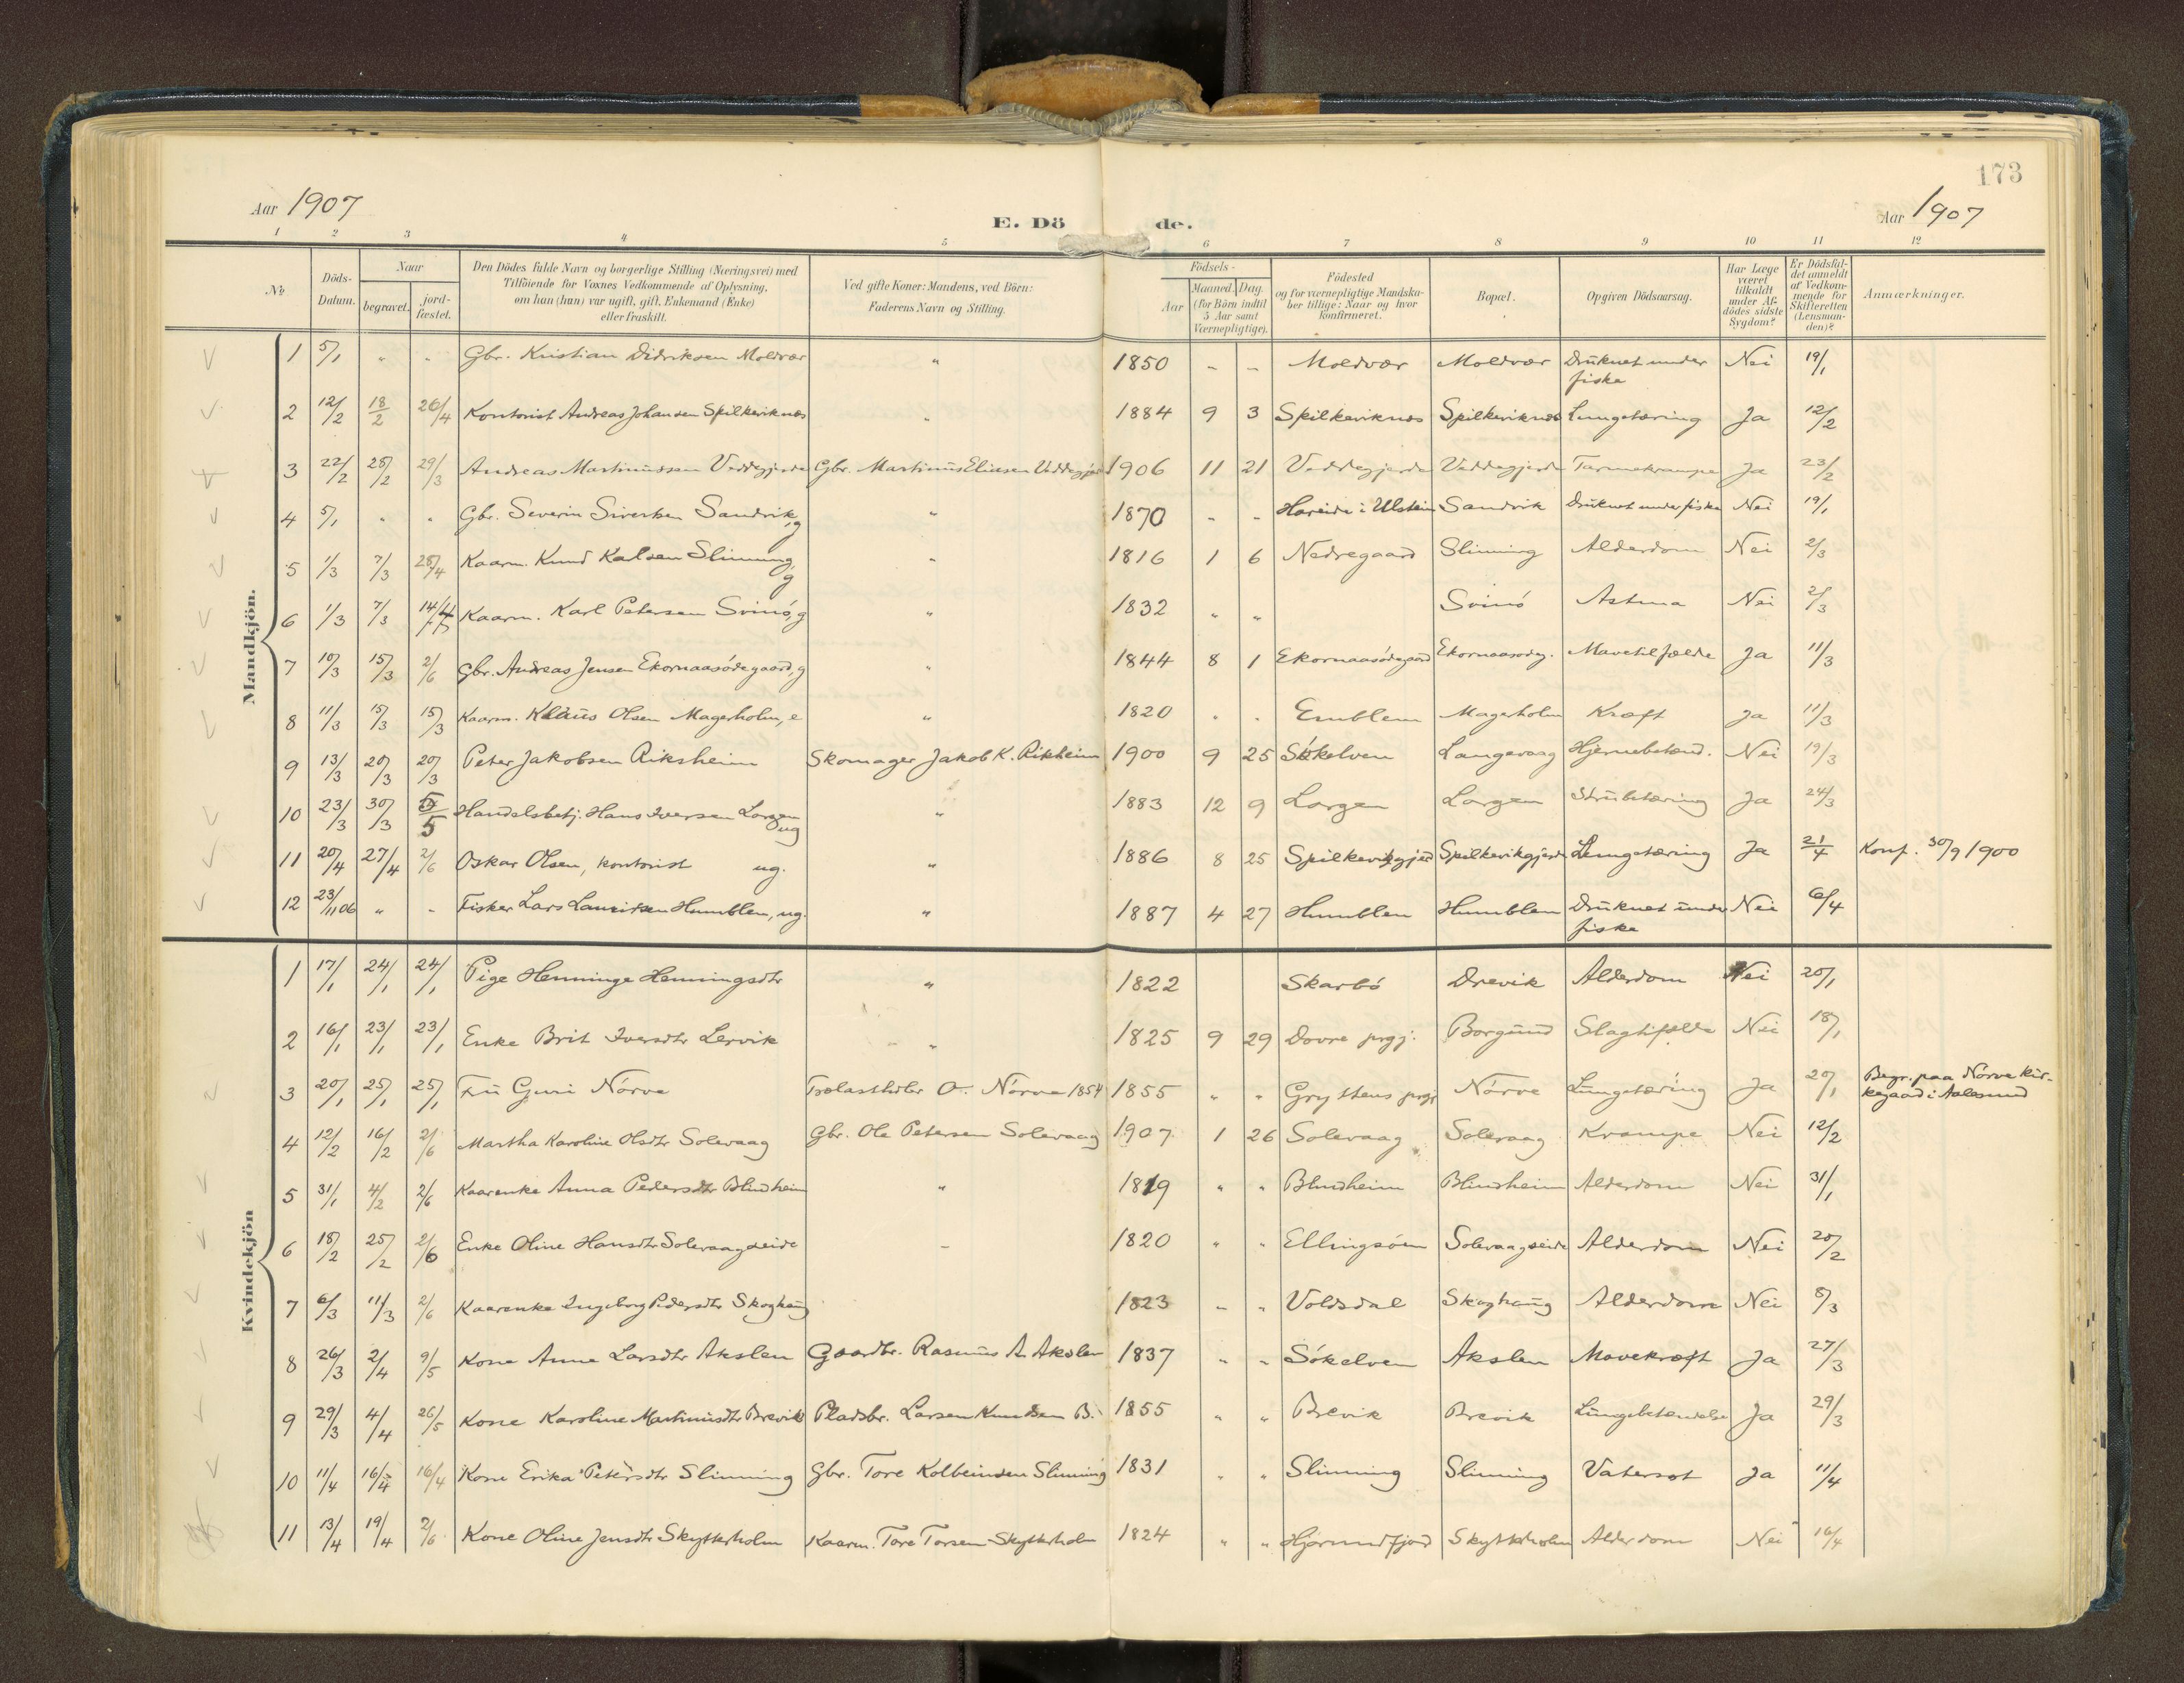 173
Aar 1907
E. Döde.
Aar 1907
1 2 3 4 5 6 7 8 9 10 11 12
No | Döds-Datum. | Naar begravet. | Naar jord-fæstet. | Den Dödes fulde Navn og borgerlige Stilling (Næringsvei) med Tilföiende for Voxnes Vedkommende af Oplysning, om han (hun) var ugift, gift, Enkemand (Enke) eller fraskilt. | Ved gifte Koner: Mandens, ved Börn: Faderens Navn og Stilling. | Födsels- Aar | Maaned. Dag. (for Börn indtil 5 Aar samt Værnepligtige). | Födested og for værnepligtige Mandska-ber tillige: Naar og hvor konfirmeret. | Bopæl. | Opgiven Dödsaarsag. | Har Læge været tilkaldt under Af-dödes sidste Sygdom? | Er Dödsfal-det anmeldt af Vedkom-mende for Skifteretten (Lensman-den)? | Anmærkninger.
Mandkjön.
1 | 5/1 | " | " | Gbr. Kristian Didriksen Moldvær | " | 1850 | - | - | Moldvær | Moldvær | Druknet under fiske | Nei | 19/1
2 | 12/2 | 18/2 | 26/4 | Kontorist Andreas Johansen Spilkeviknes | " | 1884 | 9 | 3 | Spilkeviknes | Spilkeviknes | Lungetæring | Ja | 12/2
3 | 22/2 | 28/2 | 29/3 | Andreas Martinussen Veddegjerde | Gbr. Martinus Eliasen Veddegjerde | 1906 | 11 | 21 | Veddegjerde | Veddegjerde | Tarmekrampe | Ja | 23/2
4 | 5/1 | " | " | Gbr. Severin Sivertsen Sandvik, g | " | 1870 | - | - | Hareide i Ulstein | Sandvik | Druknet under fiske | Nei | 19/1
5 | 1/3 | 7/3 | 28/4 | Kaarm. Knud Kalsen Slinning, g | " | 1816 | 1 | 6 | Nedregaard | Slinning | Alderdom | Nei | 2/3
6 | 1/3 | 7/3 | 14/4 | Kaarm. Karl Petersen Svinö, g | " | 1832 | " | " | | Svinö | Astma | Nei | 2/3
7 | 10/3 | 15/3 | 2/6 | Gbr. Andreas Jensen Ekornaasödegaard, g | " | 1844 | 8 | 1 | Ekornaasödegaard | Ekornaasodeg. | Mavetilfælde | Ja | 11/3
8 | 11/3 | 15/3 | 15/3 | Kaarm. Klaus Olsen Magerholm, e | " | 1820 | " | " | Emblem | Magerholm | Kræft | Ja | 11/3
9 | 13/3 | 20/3 | 20/3 | Peter Jakobsen Riksheim | Skomager Jakob K. Rikheim | 1900 | 9 | 25 | Sökelven | Langevaag | Hjernebetænd. | Nei | 19/3
10 | 23/3 | 30/3 | 5/5 | Handelsbetj. Hans Iversen Lorgen ug | " | 1883 | 12 | 9 | Lorgen | Lorgen | Strubetæring | Ja | 24/3
11 | 20/4 | 27/4 | 2/6 | Oskar Olsen, kontorist ug. | " | 1886 | 8 | 25 | Spilkevikgjerd | Spilkevikgjerde | Lungetæring | Ja | 21/4 | Konf. 30/9 1900
12 | 23/11 06 | " | " | Fisker Lars Lauridsen Humblen, ug. | " | 1887 | 4 | 27 | Humblen | Humblen | Druknet under fiske | Nei | 6/4
Kvindekjön
1 | 17/1 | 24/1 | 24/1 | Pige Henninge Henningsdtr | " | 1822 | | | Skarbö | Drevik | Alderdom | Nei | 20/1
2 | 16/1 | 23/1 | 23/1 | Enke Brit Iversdtr Lervik | " | 1825 | 9 | 29 | Dovre prgj. | Borgund | Slagtifælde | Nei | 18/1
3 | 20/1 | 25/1 | 25/1 | Fru Guri Nörve | Trælasthdlr O. Nörve 1854 | 1855 | " | " | Gryttens prgj | Nörve | Lungetæring | Ja | 20/1 | Begr. paa Nörve kir-kegaard i Aalesund
4 | 12/2 | 16/2 | 2/6 | Martha Karoline Olsdtr Solevaag | Gbr. Ole Petersen Solevaag | 1907 | 1 | 26 | Solevaag | Solevaag | Krampe | Nei | 12/2
5 | 31/1 | 4/2 | 2/6 | Kaarenke Anna Pedersdtr Blindheim | " | 1819 | " | " | Blindheim | Blindheim | Alderdom | Nei | 31/1
6 | 18/2 | 25/2 | 2/6 | Enke Oline Hansdtr Solevaagseide | - | 1820 | " | " | Ellingsöen | Solevaagseide | Alderdom | Nei | 20/2
7 | 6/3 | 11/3 | 2/6 | Kaarenke Ingeborg Pedersdtr Skoghaug | | 1823 | - | " | Voldsdal | Skoghaug | Alderdom | Nei | 8/3
8 | 26/3 | 2/4 | 9/5 | Kone Anne Larsdtr Akslen | Gaardbr. Rasmus A. Akslen | 1837 | " | " | Sökelven | Akslen | Mavekræft | Ja | 27/3
9 | 29/3 | 4/4 | 26/5 | Kone Karoline Martinusdtr Brevik | Pladsbr. Larsen Knudsen B. | 1855 | " | " | Brevik | Brevik | Lungebetændelse | Ja | 29/3
10 | 11/4 | 16/4 | 16/4 | Kone Erika Petersdtr Slinning | Gbr. Tore Kolbeinsen Slinning | 1831 | " | " | Slinning | Slinning | Vatersot | Ja | 11/4
11 | 13/4 | 19/4 | 2/6 | Kone Oline Jensdtr Skytterholm | Kaarm. Tore Torsen Skytterholm | 1824 | " | " | Hjörundfjord | Skytterholm | Alderdom | Nei | 16/4